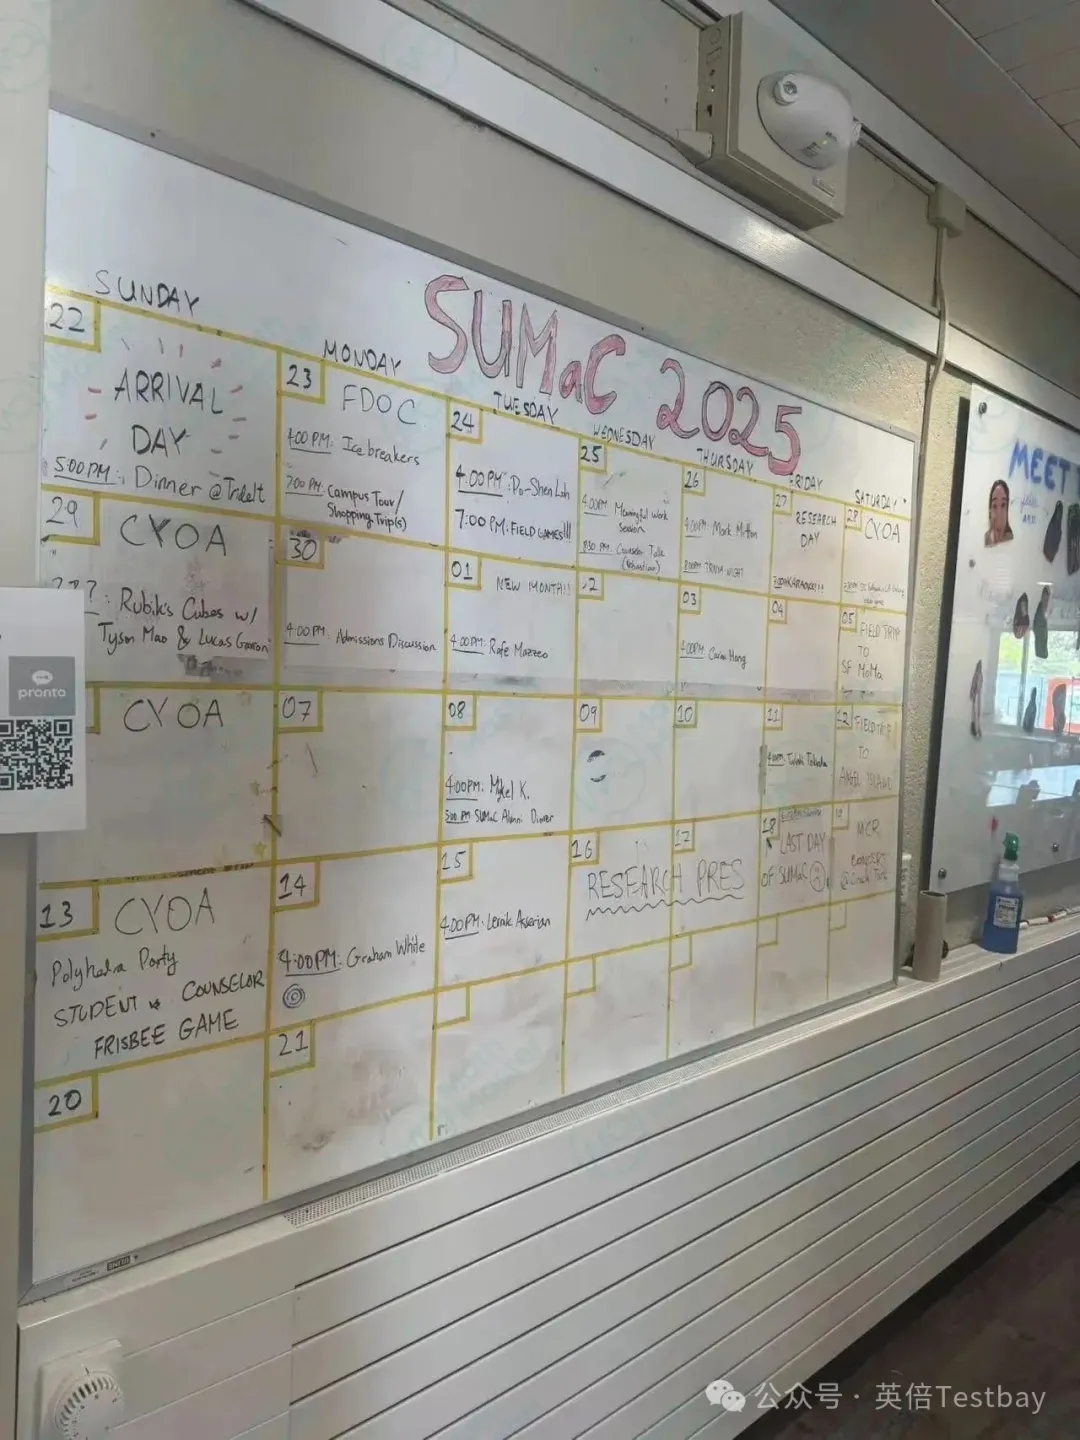 SUMaC 2025
SUNDAY
MONDAY
TUESDAY
WEDNESDAY
THURSDAY
FRIDAY
SATURDAY
22
ARRIVAL
DAY
5:00PM: Dinner @
23
FDOC
Icebreakers
7:00 PM: Campus Tour/
Shopping Trip(s)
24
4:00PM: Po-Shen Loh
7:00 PM: FIELD GAMES!!!
25
4:00PM: Meaningful work
session
8:30 PM: Counselor Talk
26
4:00PM: Mark
8:00PM TRIVIA NIGHT
27
RESEARCH
DAY
28
CYOA
29
CYOA
Rubik's Cubes w/
Tyson Mao & Lucas Garron
30
4:00PM: Admissions Discussion
01
NEW MONTH!!
4:00PM: Rafe Mazzeo
2
03
4:00PM:
04
05
FIELD TRIP
TO
SF MoMA
CYOA
07
08
4:00PM: Mykel K.
5:00 PM SUMaC Alumni Dinner
09
10
11
4:00PM:
12
FIELD TRIP
TO
ANGEL ISLAND
13
CYOA
Polyhedra Party
STUDENT COUNSELOR
FRISBEE GAME
14
4:00PM: Graham White
15
4:00PM: Lernik Asserian
16
RESEARCH PRES
17
18
LAST DAY
OF SUMaC
20
21
MEET
pronto
公众号 · 英倍Testbay